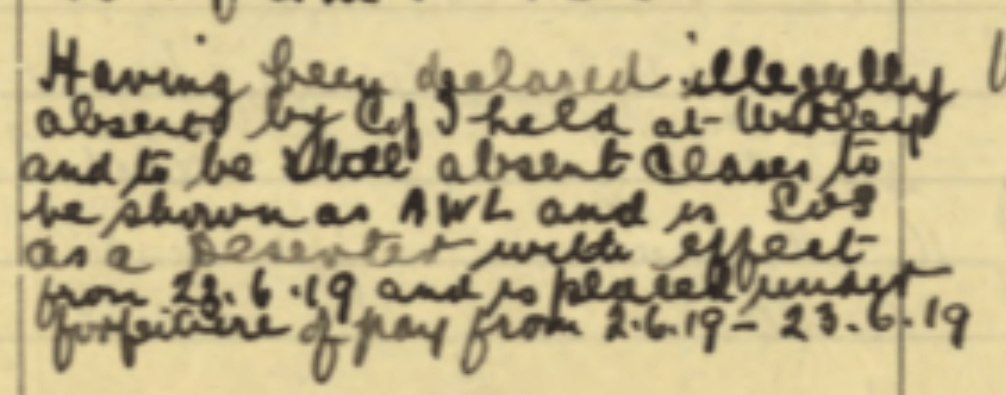 Having been declared illegally
absent by C of I held at Witley
and to be still absent Ceases to
be shown as AWL and is SOS
as a Deserter with effect
from 23.6.19 and is placed under
forfeiture of pay from 2.6.19 - 23.6.19